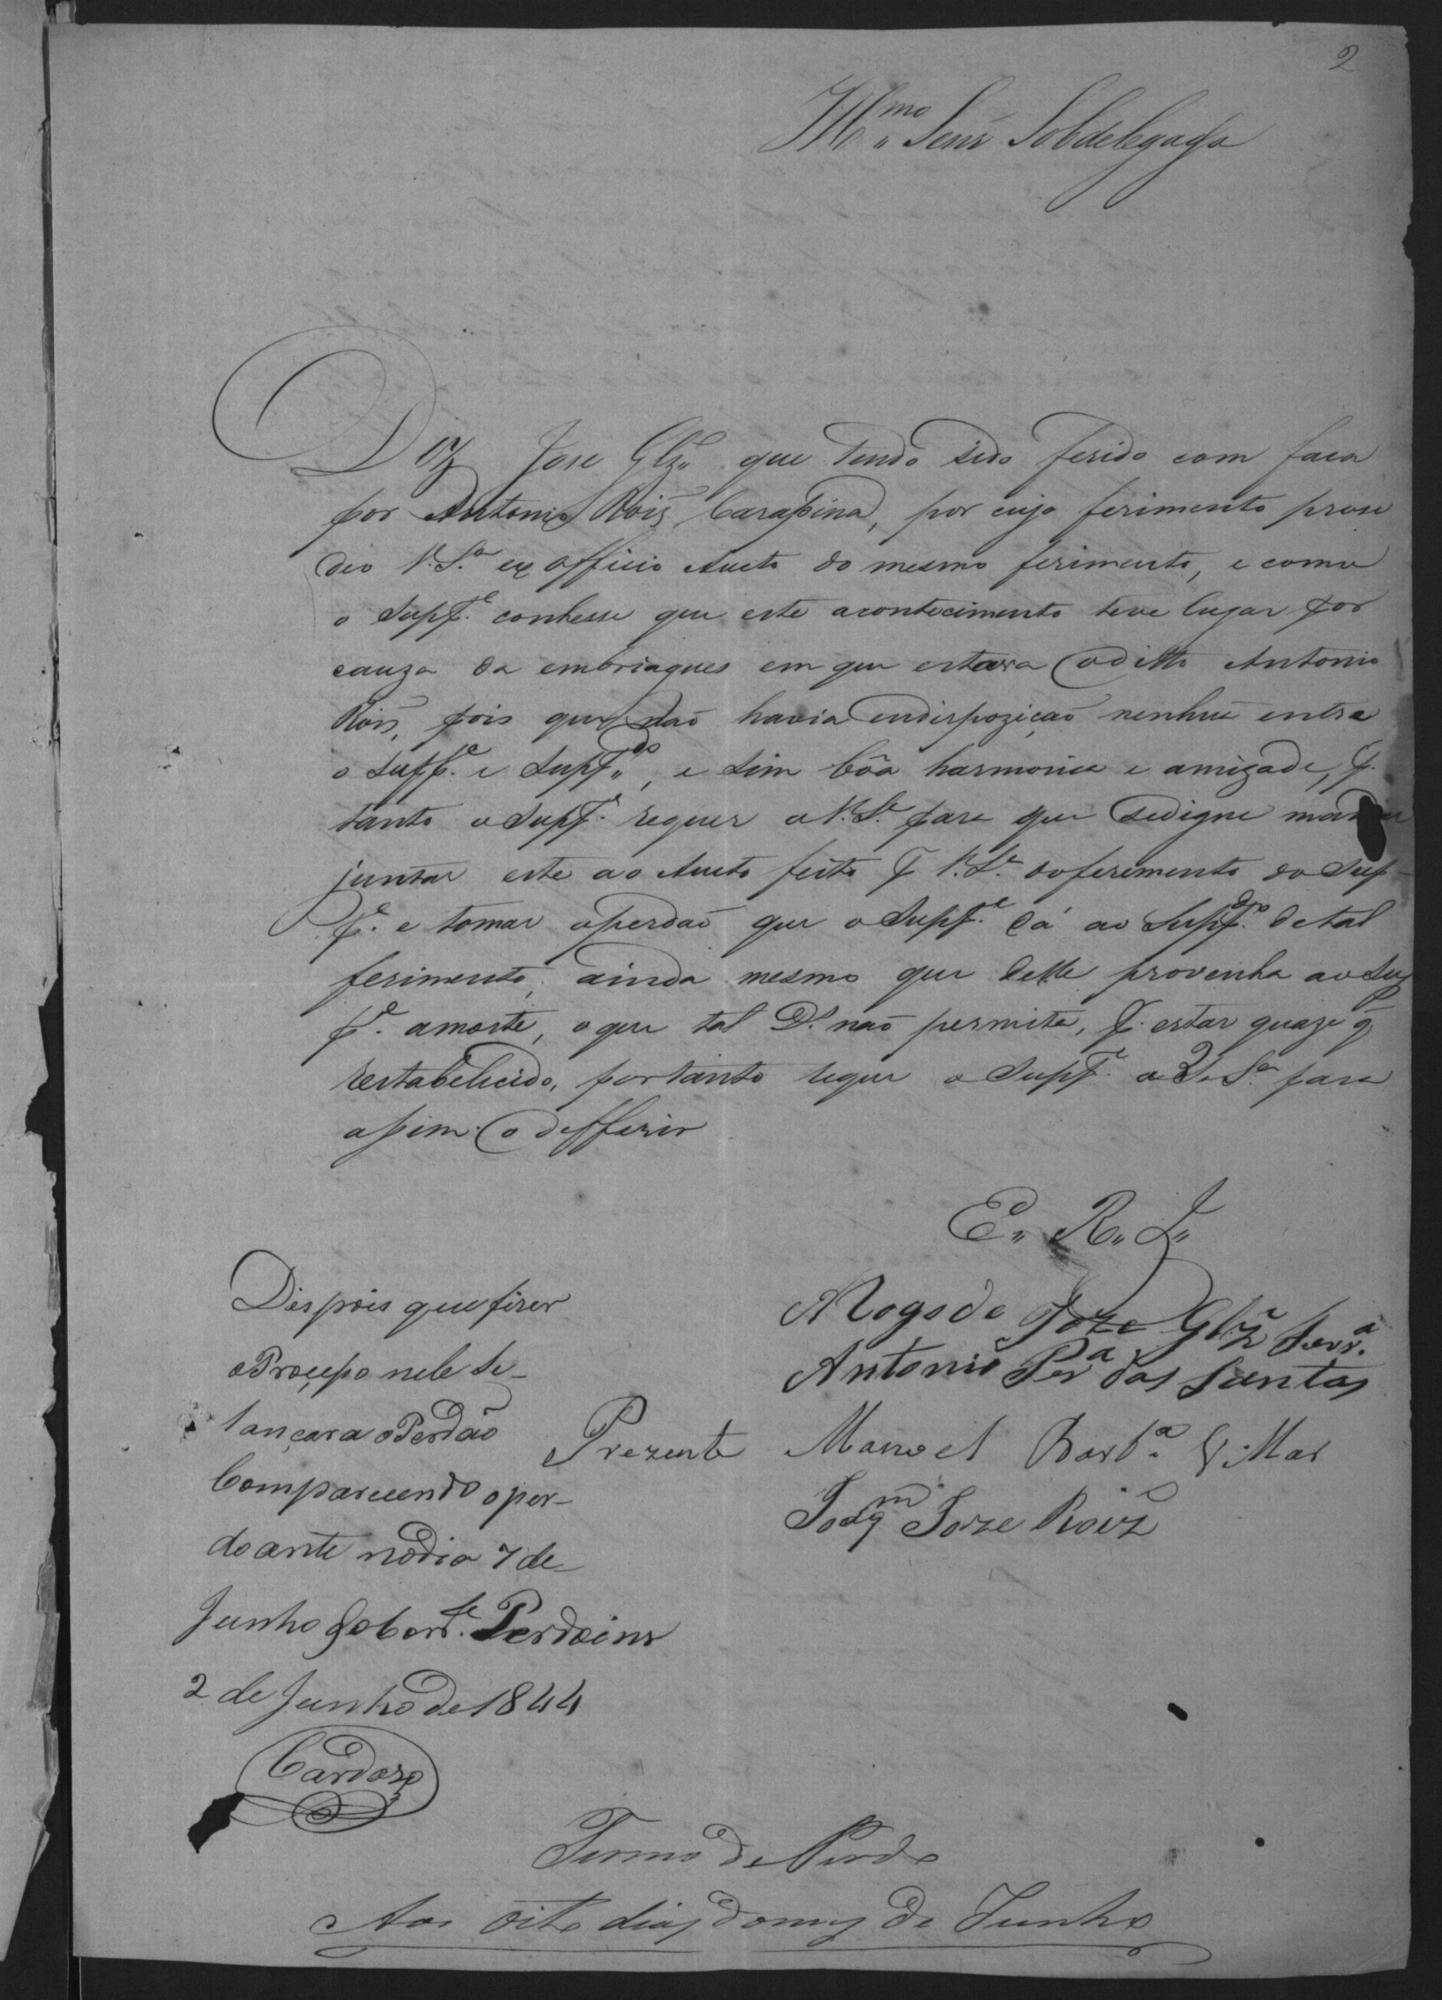 2
Illmo Senr Sobdelegado
Diz Jose Glz que tendo sido ferido com faca
por Antonio Roiz Carapina, por cujo ferimento proce
deo V. Sa ex officio Aucto do mesmo ferimento, e como
o Suppe conhesse que este acontecimento teve lugar por
cauza da embriagues em que estava o ditto Antonio
Rois, pois que não havia endispozição nenhuã entre
o Suppe e Suppdo, e sim bôa harmonia e amizade, P.
tanto o Suppe requer a V. Sa para que sedigne mandar
juntar este ao Aucto feito P V. Sa do ferimento do Sup-
Pe e tomar operdaõ que o Suppe dá ao Suppdo de tal
ferimento, ainda mesmo que delle provenha ao Sup
Pe amorte, o que tal Ds naõ permita, P. estar quaze q
restabelicido, portanto requer o Suppe a V. Sa para
assim o defferir
E,, R,, J,,
Arogo de Joze Glz Ferra
Antonio Pera dos Santos
Prezente Manoel Barba G
Joaqm Joze Roiz
Despois que fizer
o Procepo nele se-
lançara o Perdão
Comparecendo o per-
doante no dia 7 de
Junho
2 de Junho de 1844
Cardozo
Termo de Perdo
Aos oito dias do mez de Junho